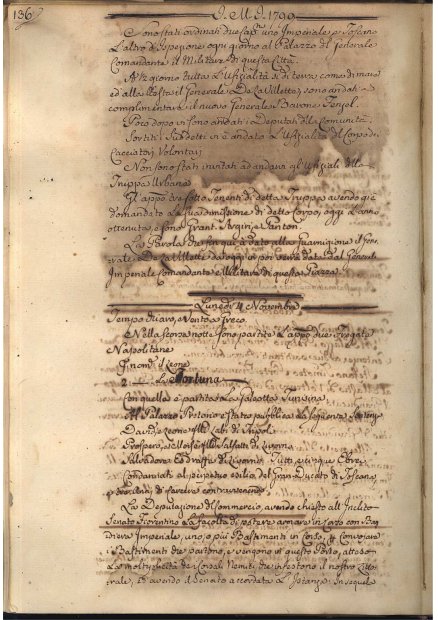 136
G. M. G. 1799
Sono stati ordinati due Cap.ni uno Imperiale, e Toscano
L'altro d'Ispezione ogni giorno al Palazzo del Generale
Comandante il Militare di questa Città.
A mezzogiorno tutta L'Ufizialità si di terra, come di mare
ed alla testa il Generale De La Villette, sono andati a
complimentare il nuovo Generale Barone
Poco dopo vi sono andati i Deputati della Comunità.
Sortiti i Suddetti vi è andata L'Ufizialità del Corpo di
Cacciatori Volontari
Non sono stati invitati ad andarvi gl'Ufiziali della
Truppa Urbana
Gl'app.o tre sotto Tenenti di detta Truppa avendo già
domandato La sua dimissione di detto Corpo, oggi L'anno
ottenuta, e sono Grant, Argiri, e Panton.
La Parola che fin qui à dato alla Guarnigione il Gene-
rale De La Villette da oggi in poi verrà data dal General
Imperiale Comandante il Militare di questa Piazza.
Lunedì 4 Novembre
Tempo Chiaro, e Vento a Greco.
Nella scorsa notte sono partite L'app.o due Fregate
Napolitane
2 — La Fortuna
Con quelle è partita La Galeotta Tunisina
Al Palazzo Pretorio è stata pubblicata La seguente
David, e Leone Tripoli
Prospero, e Livorno
Salvadore di Livorno Tutti per aver
Condannati al perpetuo esilio del Gran-Ducato di Toscana
di carcere contravvenendo.
La Deputazione di Commercio, avendo chiesto all'Inclito
Senato Fiorentino La facoltà di potere armare in Corso con Ban
diera Imperiale, uno, o più Bastimenti in Corso, e Convojare
i Bastimenti che partono, e vengono in questo Porto, atteso
La molteplicità dei Corsali Nemici che infestono il nostro Litto-
rale, ed avendo il Senato accordata L'Istanza. In seguito